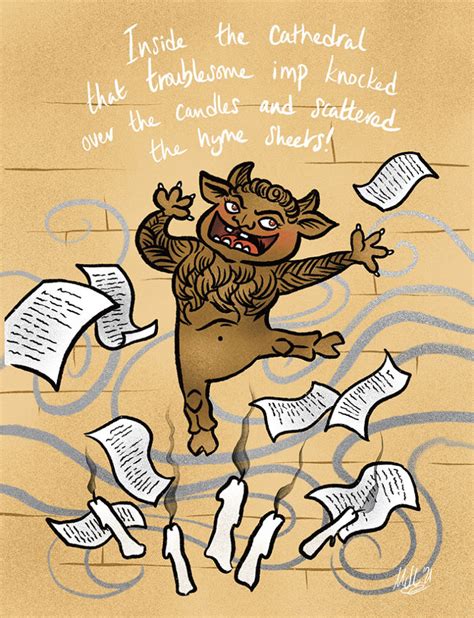 Inside the cathedral
that troublesome imp knocked
over the candles and scattered
the hyme sheets!